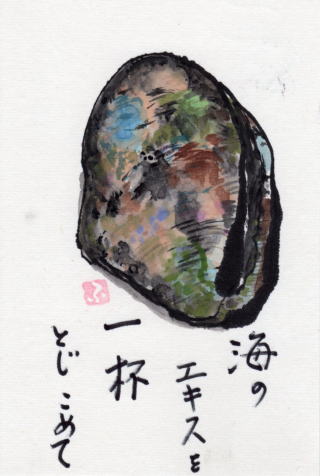 海の
エキスを
一杯
とじこめて
ふ